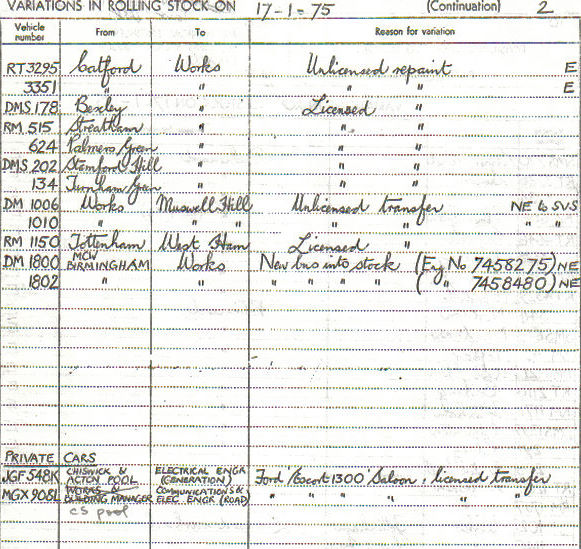 VARIATIONS IN ROLLING STOCK ON 17-1-75 (Continuation) 2
Vehicle number From To Reason for variation
RT3295 Catford Works Unlicensed repaint E
3351 " " " " E
DMS 178 Bexley " Licensed "
RM 515 Streatham " " "
624 Palmers Green " " "
DMS 202 Stamford Hill " " "
134 Turnham Green " " "
DM 1006 Works Muswell Hill Unlicensed transfer NE to SVS
1010 " " " " " " "
RM 1150 Tottenham West Ham Licensed "
DM 1800 MCW BIRMINGHAM Works New bus into stock (Eng No 7458275) NE
1802 " " " " " " ( " 7458480) NE
PRIVATE CARS
JGF 548K CHISWICK & ACTON POOL ELECTRICAL ENGR (GENERATION) Ford 'Escort 1300' Saloon, licensed transfer
MGX 908L WORKS & BUILDING MANAGER COMMUNICATIONS & ELEC ENGR (ROAD) " " " " "
CS pool